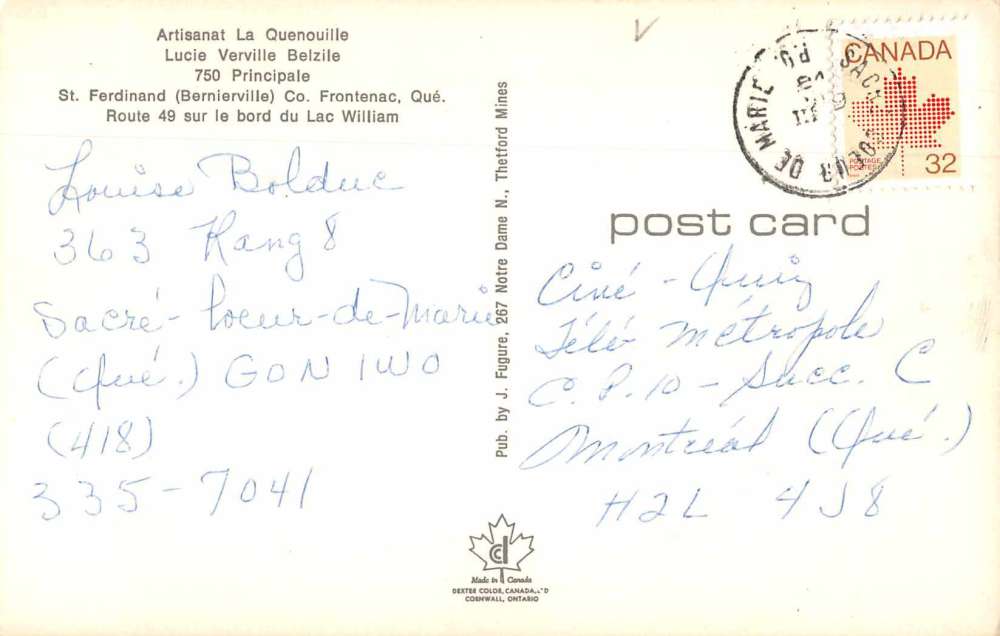 Artisanat La Quenouille
Lucie Verville Belzile
750 Principale
St. Ferdinand (Bernierville) Co. Frontenac, Qué.
Route 49 sur le bord du Lac William
Louise Bolduc
363 Rang 8
Sacré-Coeur-de-Marie
(Qué.) G0N 1W0
(418)
335-7041
Pub. by J. Fugure, 267 Notre Dame N., Thetford Mines
CANADA
POSTAGE
POSTES
32
SACRE COEUR DE MARIE
P.Q.
post card
Ciné-Quiz
Télé Métropole
C.P. 10 - Succ. C
Montréal (Qué.)
H2L 4J8
Made in Canada
DEXTER COLOR, CANADA,
CORNWALL, ONTARIO